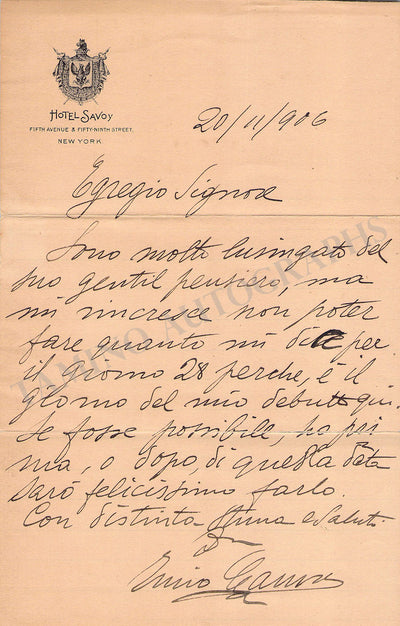 HOTEL SAVOY
FIFTH AVENUE & FIFTY-NINTH STREET,
NEW YORK
20/11/906
Egregio Signore
Sono molto lusingato del
suo gentil pensiero, ma
mi rincresce non poter
fare quanto mi dice per
il giorno 28 perche, è il
giorno del mio debutto qui.
Se fosse possibile, ho pri
ma, o dopo, di questa data
sarò felicissimo farlo.
Con distinta stima e saluti
TAMINO AUTOGRAPHS